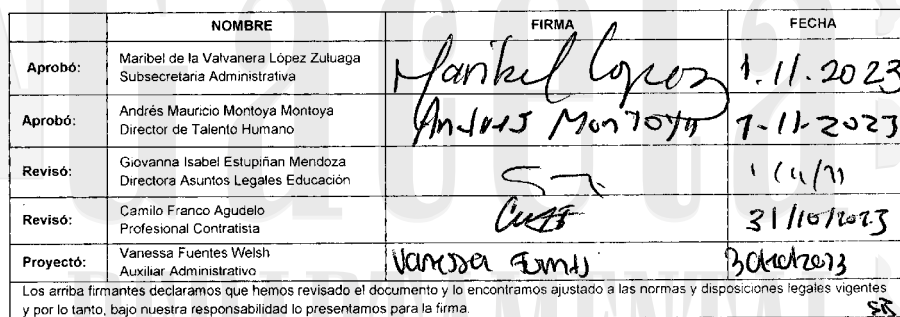 NOMBRE FIRMA FECHA
Aprobó: Maribel de la Valvanera López Zuluaga
Subsecretaria Administrativa
Maribel Lopez 1.11.2023
Aprobó: Andrés Mauricio Montoya Montoya
Director de Talento Humano
Andres Montoya 1-11-2023
Revisó: Giovanna Isabel Estupiñan Mendoza
Directora Asuntos Legales Educación
Revisó: Camilo Franco Agudelo
Profesional Contratista
31/10/2023
Proyectó: Vanessa Fuentes Welsh
Auxiliar Administrativo
Vanessa Fuentes
Los arriba firmantes declaramos que hemos revisado el documento y lo encontramos ajustado a las normas y disposiciones legales vigentes
y por lo tanto, bajo nuestra responsabilidad lo presentamos para la firma.